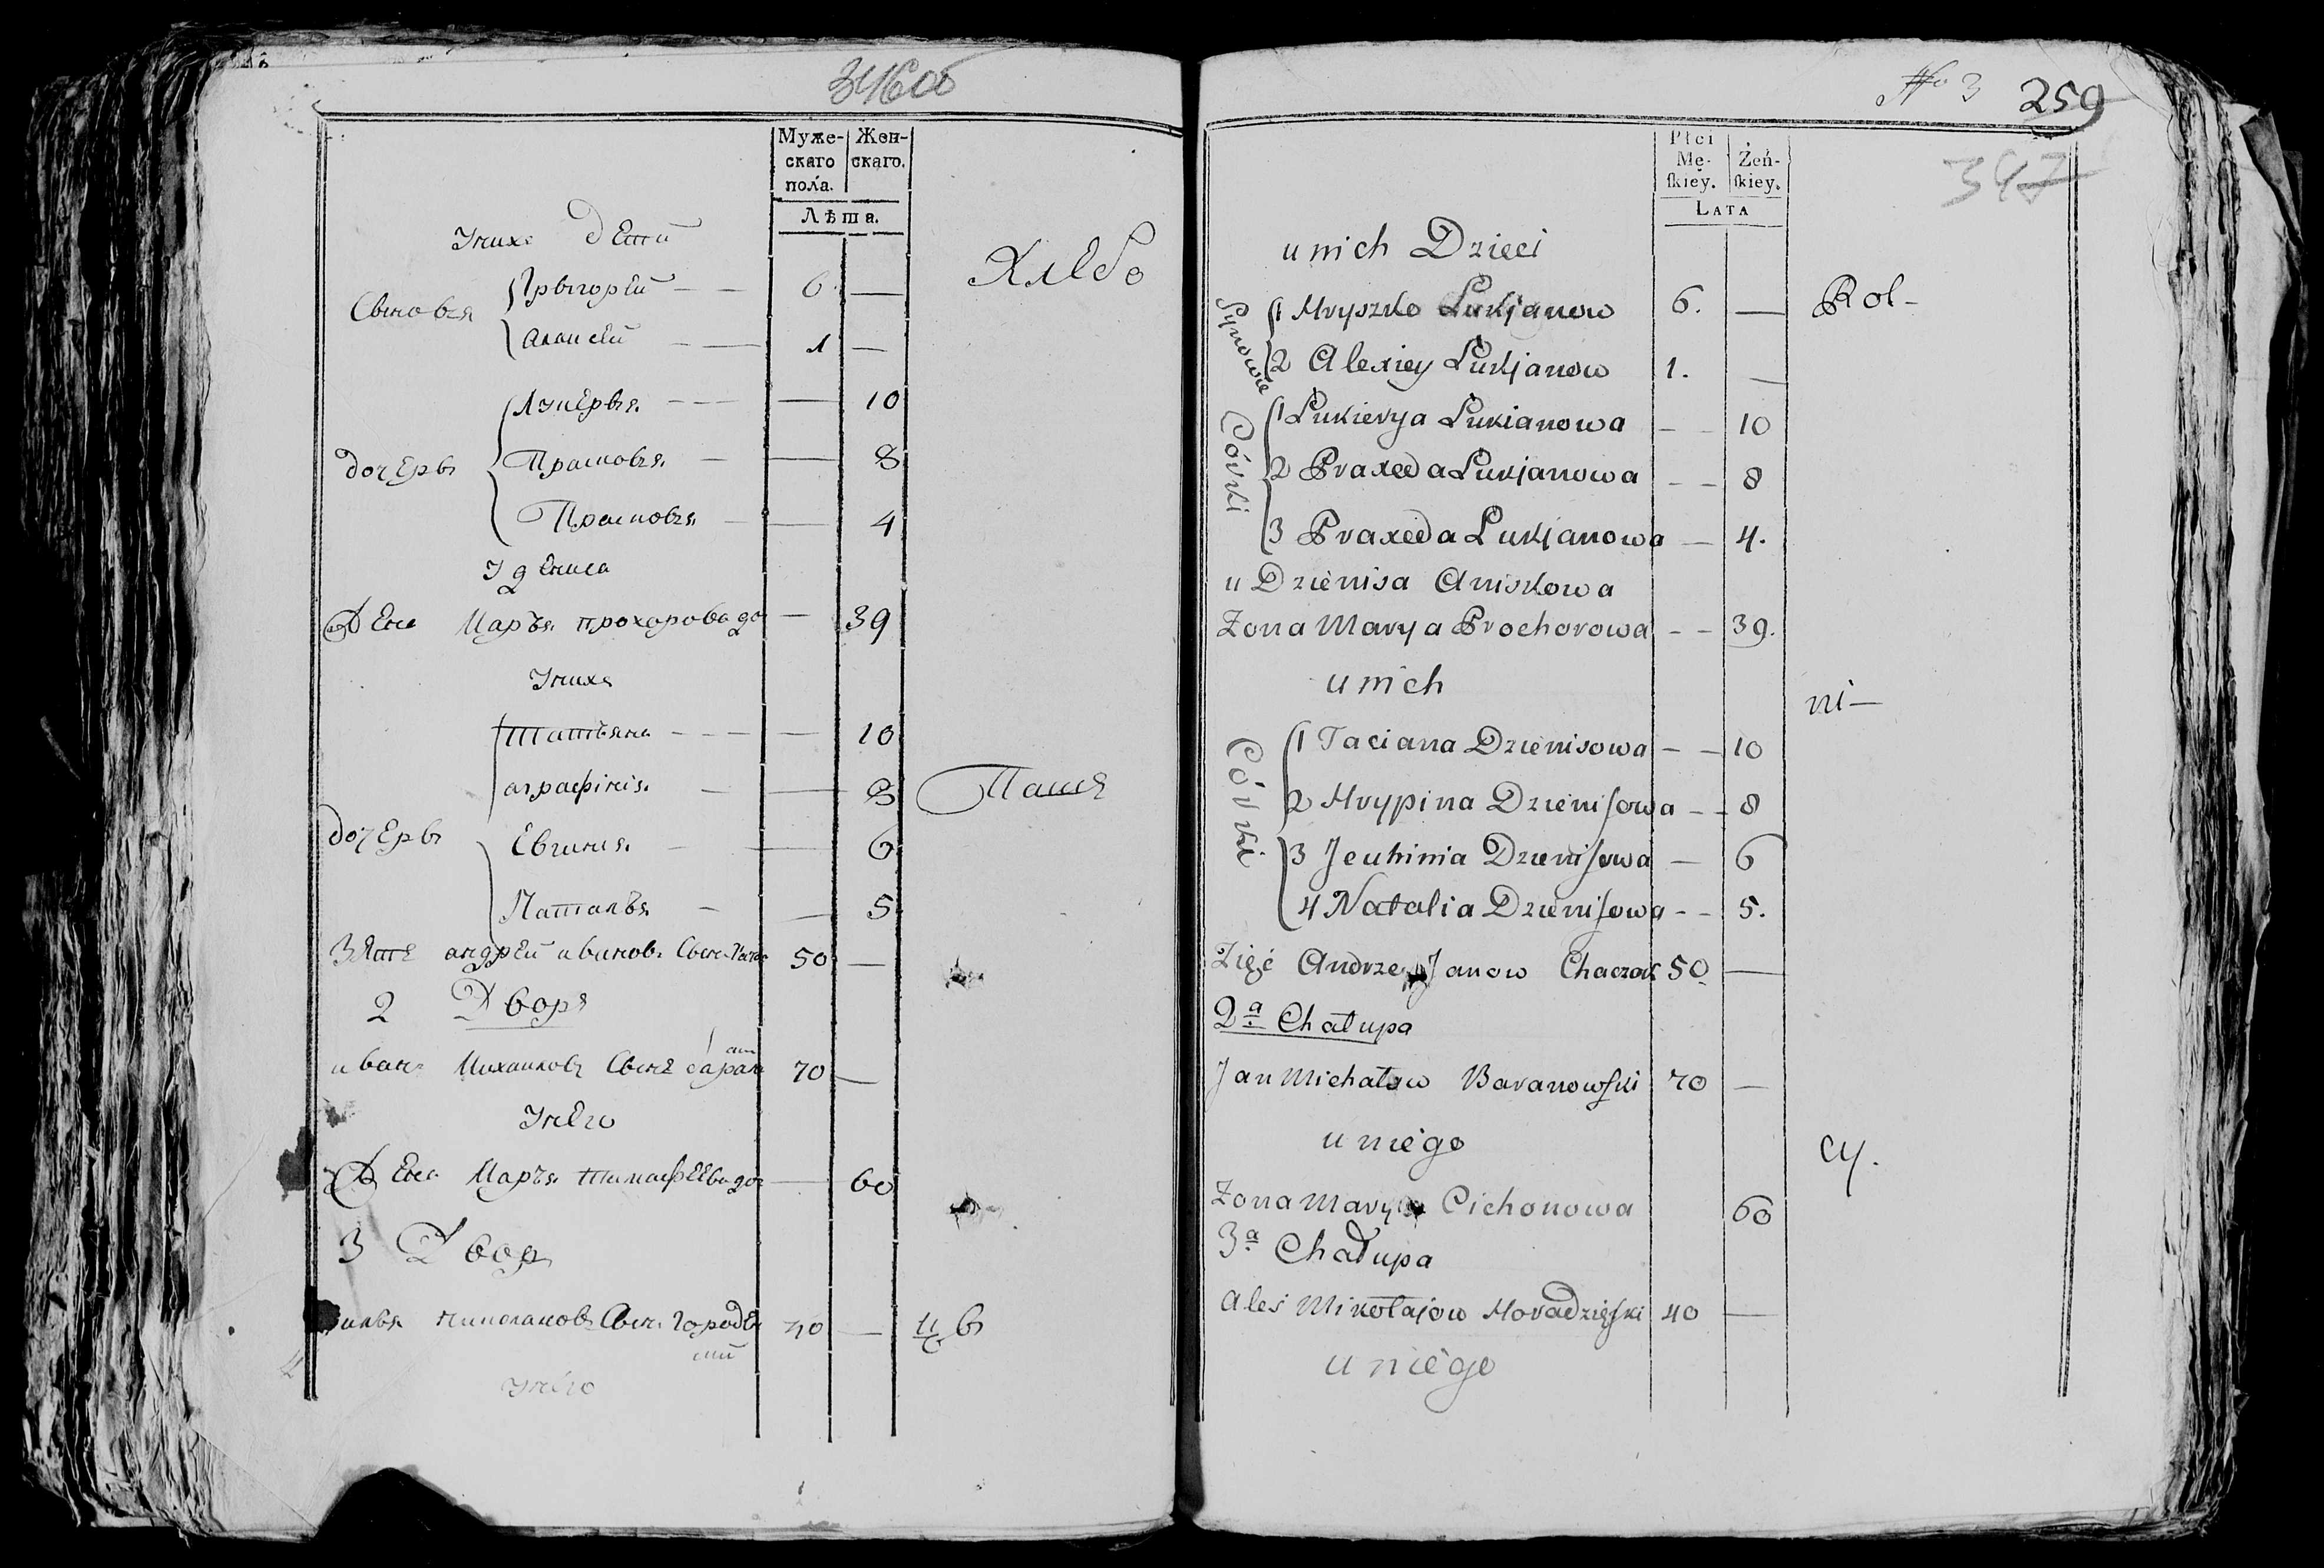 346об
Муже-
скаго
пола.
Жен-
скаго.
Лѣта.
Унихъ дети
Хлебо
Сыновья
Грыгорей — — 6. —
Алексей — — 1 —
дочеры
Лукерья — — — 10
Прасковья — — 8
Прасковья — — 4
У дениса
Жена Марья прохорова до — 39
Унихъ
дочеры
Татьяна — — — — 10
аграфінія — — 8
Паше
Евгиния — — 6
Наталья — — 5
Зять андрей ивановъ Сынъ 50 —
2 Дворъ
иванъ Михаиловъ Сынъ баран 70 —
Унего
Жена Марья тимафеева до — 60
3 Дворъ
илья николаевъ Сынъ Городец 40 —
цы
кий
Унего
№ 3 259
347
Płci
Mę-
ſkiéy.
Żeń-
ſkiey.
LATA
u nich Dzieci
Synowie
1 Hryszko Lukjanow 6. —
Rol-
2 Alexiey Lukjanow 1. —
Córki
1 Lukierya Lukianowa — — 10
2 Praxeda Lukjanowa — — 8
3 Praxeda Lukjanowa — 4.
u Dzienisa Aniskowa
Żona Marya Prochorowa — — 39.
u nich
ni—
Córki
1 Taciana Dzienisowa — — 10
2 Hrypina Dzieniſowa — — 8
3 Jeuhinia Dzieniſowa — 6
4 Natalia Dzieniſowa — — 5.
Zięć Andrzey Janow Chaczak 50 —
2a. Chałupa
Jan Michałow Baranowſki 70 —
u niego
cy.
Żona Marya Cichonowa 60
3a. Chałupa
Ales Mikołajow Horadzięſki 40 —
u niego